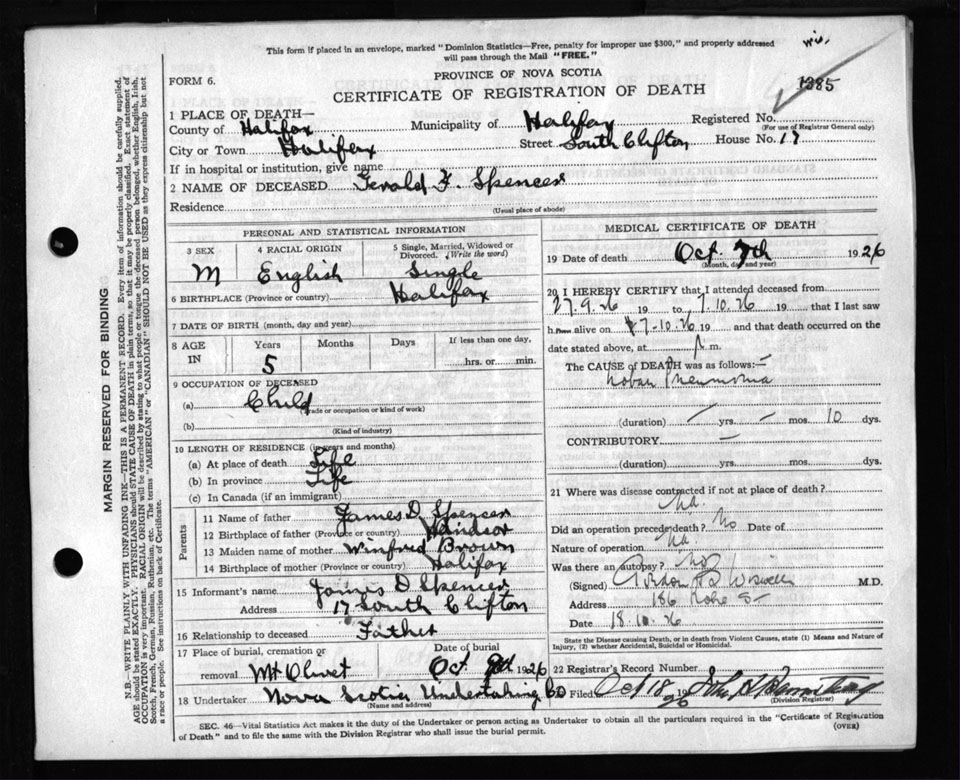 This form if placed in an envelope, marked "Dominion Statistics—Free, penalty for improper use $300," and properly addressed
will pass through the Mail "FREE."
PROVINCE OF NOVA SCOTIA
FORM 6.
CERTIFICATE OF REGISTRATION OF DEATH
1385
1 PLACE OF DEATH—
County of Halifax Municipality of Halifax Registered No.
(For use of Registrar General only)
City or Town Halifax Street South Clifton House No. 17
If in hospital or institution, give name
2 NAME OF DECEASED Gerald F. Spencer
Residence
(Usual place of abode)
PERSONAL AND STATISTICAL INFORMATION
3 SEX 4 RACIAL ORIGIN 5 Single, Married, Widowed or
Divorced. (Write the word)
M English Single
6 BIRTHPLACE (Province or country) Halifax
7 DATE OF BIRTH (month, day and year)
8 AGE IN Years Months Days If less than one day,
5 hrs. or min.
9 OCCUPATION OF DECEASED
(a) Child
(Trade or occupation or kind of work)
(b)
(Kind of industry)
10 LENGTH OF RESIDENCE (in years and months)
(a) At place of death Life
(b) In province Life
(c) In Canada (if an immigrant)
Parents
11 Name of father James D. Spencer
12 Birthplace of father (Province or country) Windsor
13 Maiden name of mother Winfred Brown
14 Birthplace of mother (Province or country) Halifax
15 Informant's name James D Spencer
Address 17 South Clifton
16 Relationship to deceased Father
17 Place of burial, cremation or Date of burial
removal Mt Olivet Oct 1926
18 Undertaker Nova Scotia Undertaking Co
(Name and address)
MEDICAL CERTIFICATE OF DEATH
19 Date of death Oct. 7th 1926
(Month, day and year)
20 I HEREBY CERTIFY that I attended deceased from
27.9.26 19 to 7.10.26 19 that I last saw
h alive on 7-10-26 19 and that death occurred on the
date stated above, at P m.
The CAUSE of DEATH was as follows:—
Lobar Pneumonia
(duration) — yrs. — mos. 10 dys.
CONTRIBUTORY —
(duration) yrs. mos. dys.
21 Where was disease contracted if not at place of death?
Did an operation precede death? No Date of
Nature of operation
Was there an autopsy? No
(Signed) M.D.
Address 186
Date 18.10.26
State the Disease causing Death, or in death from Violent Causes, state (1) Means and Nature of
Injury, (2) whether Accidental, Suicidal or Homicidal.
22 Registrar's Record Number
Filed Oct 18 1926
(Division Registrar)
SEC. 46—Vital Statistics Act makes it the duty of the Undertaker or person acting as Undertaker to obtain all the particulars required in the "Certificate of Registration
of Death" and to file the same with the Division Registrar who shall issue the burial permit.
(OVER)
MARGIN RESERVED FOR BINDING
N.B.—WRITE PLAINLY WITH UNFADING INK—THIS IS A PERMANENT RECORD. Every item of information should be carefully supplied.
AGE should be stated EXACTLY. PHYSICIANS should STATE CAUSE OF DEATH in plain terms, so that it may be properly classified. Exact statement of
OCCUPATION is very important. RACIAL ORIGIN will be described by stating to what people or tongue the deceased person belonged, whether English, Irish,
Scotch, French, German, Russian, Ruthenian, etc. The terms "AMERICAN" or "CANADIAN" SHOULD NOT BE USED as they express citizenship but not
a race or people. See instructions on back of Certificate.